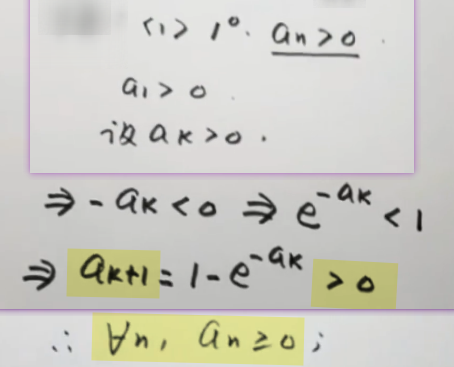 <1> 1°. an > 0
a1 > 0.
设 ak > 0.
⇒ -ak < 0 ⇒ e^{-ak} < 1
⇒ ak+1 = 1 - e^{-ak} > 0
∴ ∀n, an ≥ 0;